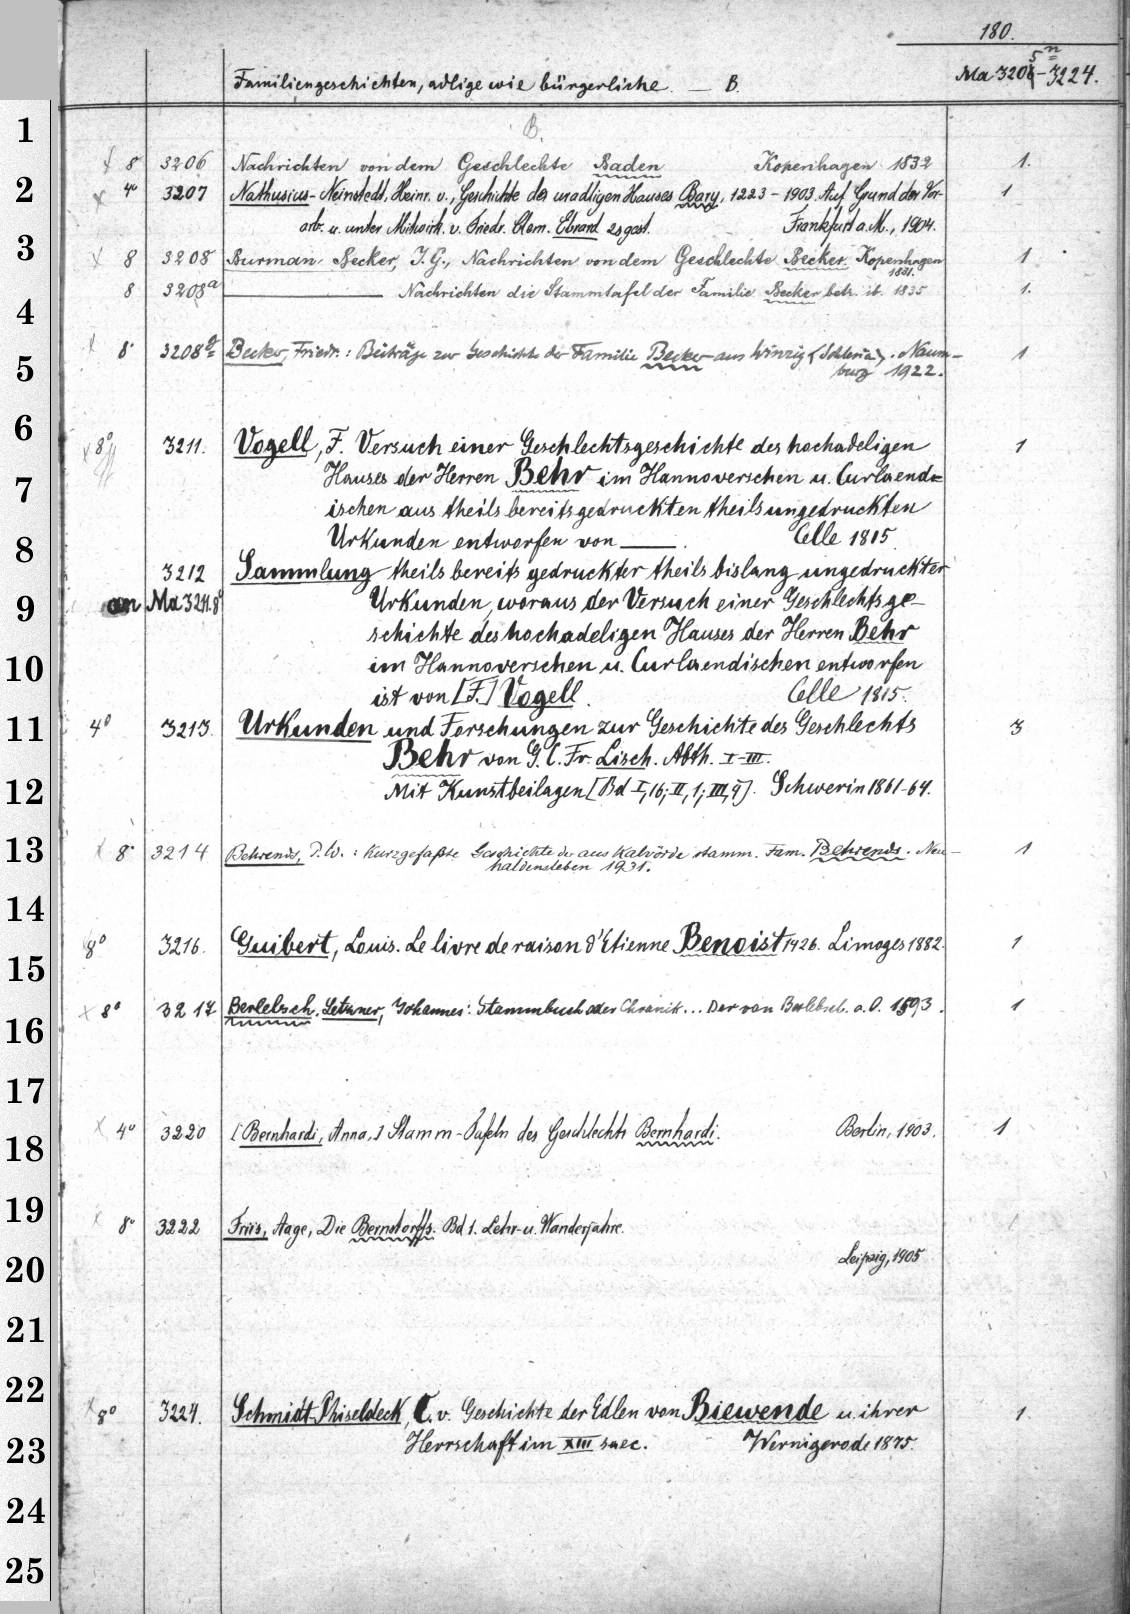 180.
Familiengeschichten, adlige wie bürgerliche. — B. Ma 3206-3224.
B.
8 3206 Nachrichten von dem Geschlechte Baden Kopenhagen 1832 1.
4° 3207 Nathusius-Neinstedt, Heinr. v., Geschichte des uradligen Hauses Bary, 1223-1903. Auf Grund der Vor- 1
arb. u. unter Mitwirk. v. Friedr. Clem. Ebrard zsgest. Frankfurt a. M., 1904.
8 3208 Burman Becker, J. G., Nachrichten von dem Geschlechte Becker. Kopenhagen 1
1831.
8 3208a ——— Nachrichten die Stammtafel der Familie Becker betr. ib. 1835 1.
8° 3208 Becker, Friedr.: Beiträge zur Geschichte der Familie Becker aus Winzig (Schlesia). Naum- 1
burg 1922.
8° 3211. Vogell, F. Versuch einer Geschlechtsgeschichte des hochadeligen 1
Hauses der Herren Behr im Hannoverschen u. Curlaend=
ischen aus theils bereits gedruckten theils ungedruckten
Urkunden entworfen von ———. Celle 1815.
3212 Sammlung theils bereits gedruckter theils bislang ungedruckter
an Ma 3211.8° Urkunden, woraus der Versuch einer Geschlechtsge-
schichte des hochadeligen Hauses der Herren Behr
im Hannoverschen u. Curlaendischen entworfen
ist von [F.] Vogell. Celle 1815.
4° 3213. Urkunden und Forschungen zur Geschichte des Geschlechts 3
Behr von G. C. Fr. Lisch. Abth. I-III.
Mit Kunstbeilagen [Bd I,16; II,1; III,9]. Schwerin 1861-64.
8° 3214 Behrends, P. W.: Kurzgefaßte Geschichte der aus Kalvörde stamm. Fam. Behrends. Neu- 1
haldensleben 1931.
8° 3216. Guibert, Louis. Le livre de raison d'Etienne Benoist 1426. Limoges 1882. 1
8° 3217 Berlebsch. Letzner, Johannes: Stammbuch oder Chronik... Der von Berlebsch. o. O. 1593. 1
4° 3220 [Bernhardi, Anna,] Stamm-Tafeln des Geschlechts Bernhardi. Berlin, 1903. 1
8° 3222 Friis, Aage, Die Bernstorffs. Bd 1. Lehr- u. Wanderjahre. 1
Leipzig, 1905
8° 3224. Schmidt-Phiseldeck, C. v. Geschichte der Edlen von Biewende u. ihrer 1.
Herrschaft im XIII saec. Wernigerode 1875.
1
2
3
4
5
6
7
8
9
10
11
12
13
14
15
16
17
18
19
20
21
22
23
24
25